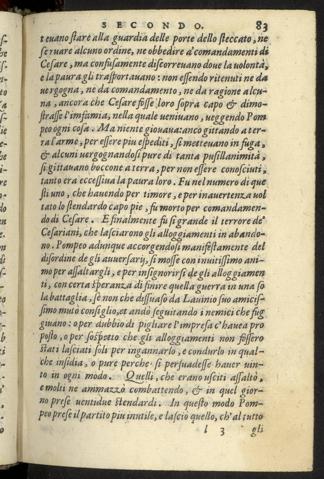 SECONDO. 83
teuano stare alla guardia delle porte dello steccato, ne
seruare alcuno ordine, ne obbedire a' comandamenti di
Cesare, ma confusamente discorreuano doue la volontà,
e la paura gli trasportauano: non essendo ritenuti ne da
vergogna, ne da comandamento, ne da ragione alcu-
na, ancora che Cesare fosse loro sopra capo & dimo-
strasse l'infamia, nella quale veniuano, veggendo Pom
peo ogni cosa. Ma niente giouaua: anco gittando a ter-
ra l'arme, per essere piu espediti, si metteuano in fuga,
& alcuni vergognandosi pure di tanta pusillanimità,
si gittauano boccone a terra, per non essere conosciuti,
tanto era eccessiua la paura loro. Fu nel numero di que
sti uno, che hauendo per timore, e per inauertenza uol
tato lo stendardo capo pie, fu morto per comandamen-
do di Cesare. E finalmente fu si grande il terrore de'
Cesariani, che lasciarono gli alloggiamenti in abando-
no. Pompeo adunque accorgendosi manifestamente del
disordine de gli auuersarij, si mosse con inuitissimo ani-
mo per assaltargli, e per insignorirsi de gli alloggiamen
ti, con certa speranza di finire quella guerra in una so
la battaglia, se non che dissuaso da Lauinio suo amicis-
simo mutò consiglio, et andò seguitando i nemici che fug
giuano: o per dubbio di pigliare l'impresa c'hauea pro
posto, o per sospetto che gli alloggiamenti non fossero
stati lasciati soli per ingannarlo, e condurlo in qual-
che insidia, o pure perche si persuadesse hauer uin-
to in ogni modo. Quelli, che erano usciti assaltò,
e molti ne ammazzò combattendo, & in quel gior-
no prese uentidue stendardi. In questo modo Pom-
peo prese il partito piu inutile, e lasciò quello, ch'al tutto
l 3 gli